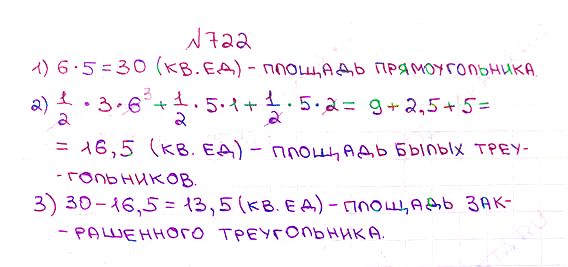 №722
1) 6·5=30 (КВ.ЕД) - ПЛОЩАДЬ ПРЯМОУГОЛЬНИКА.
2) 1/2 · 3 · 6³ + 1/2 · 5 · 1 + 1/2 · 5 · 2 = 9 + 2,5 + 5 =
= 16,5 (КВ. ЕД) - ПЛОЩАДЬ БЫЛЫХ ТРЕУ-
-ГОЛЬНИКОВ.
3) 30-16,5=13,5 (КВ.ЕД) - ПЛОЩАДЬ ЗАК-
-РАШЕННОГО ТРЕУГОЛЬНИКА.